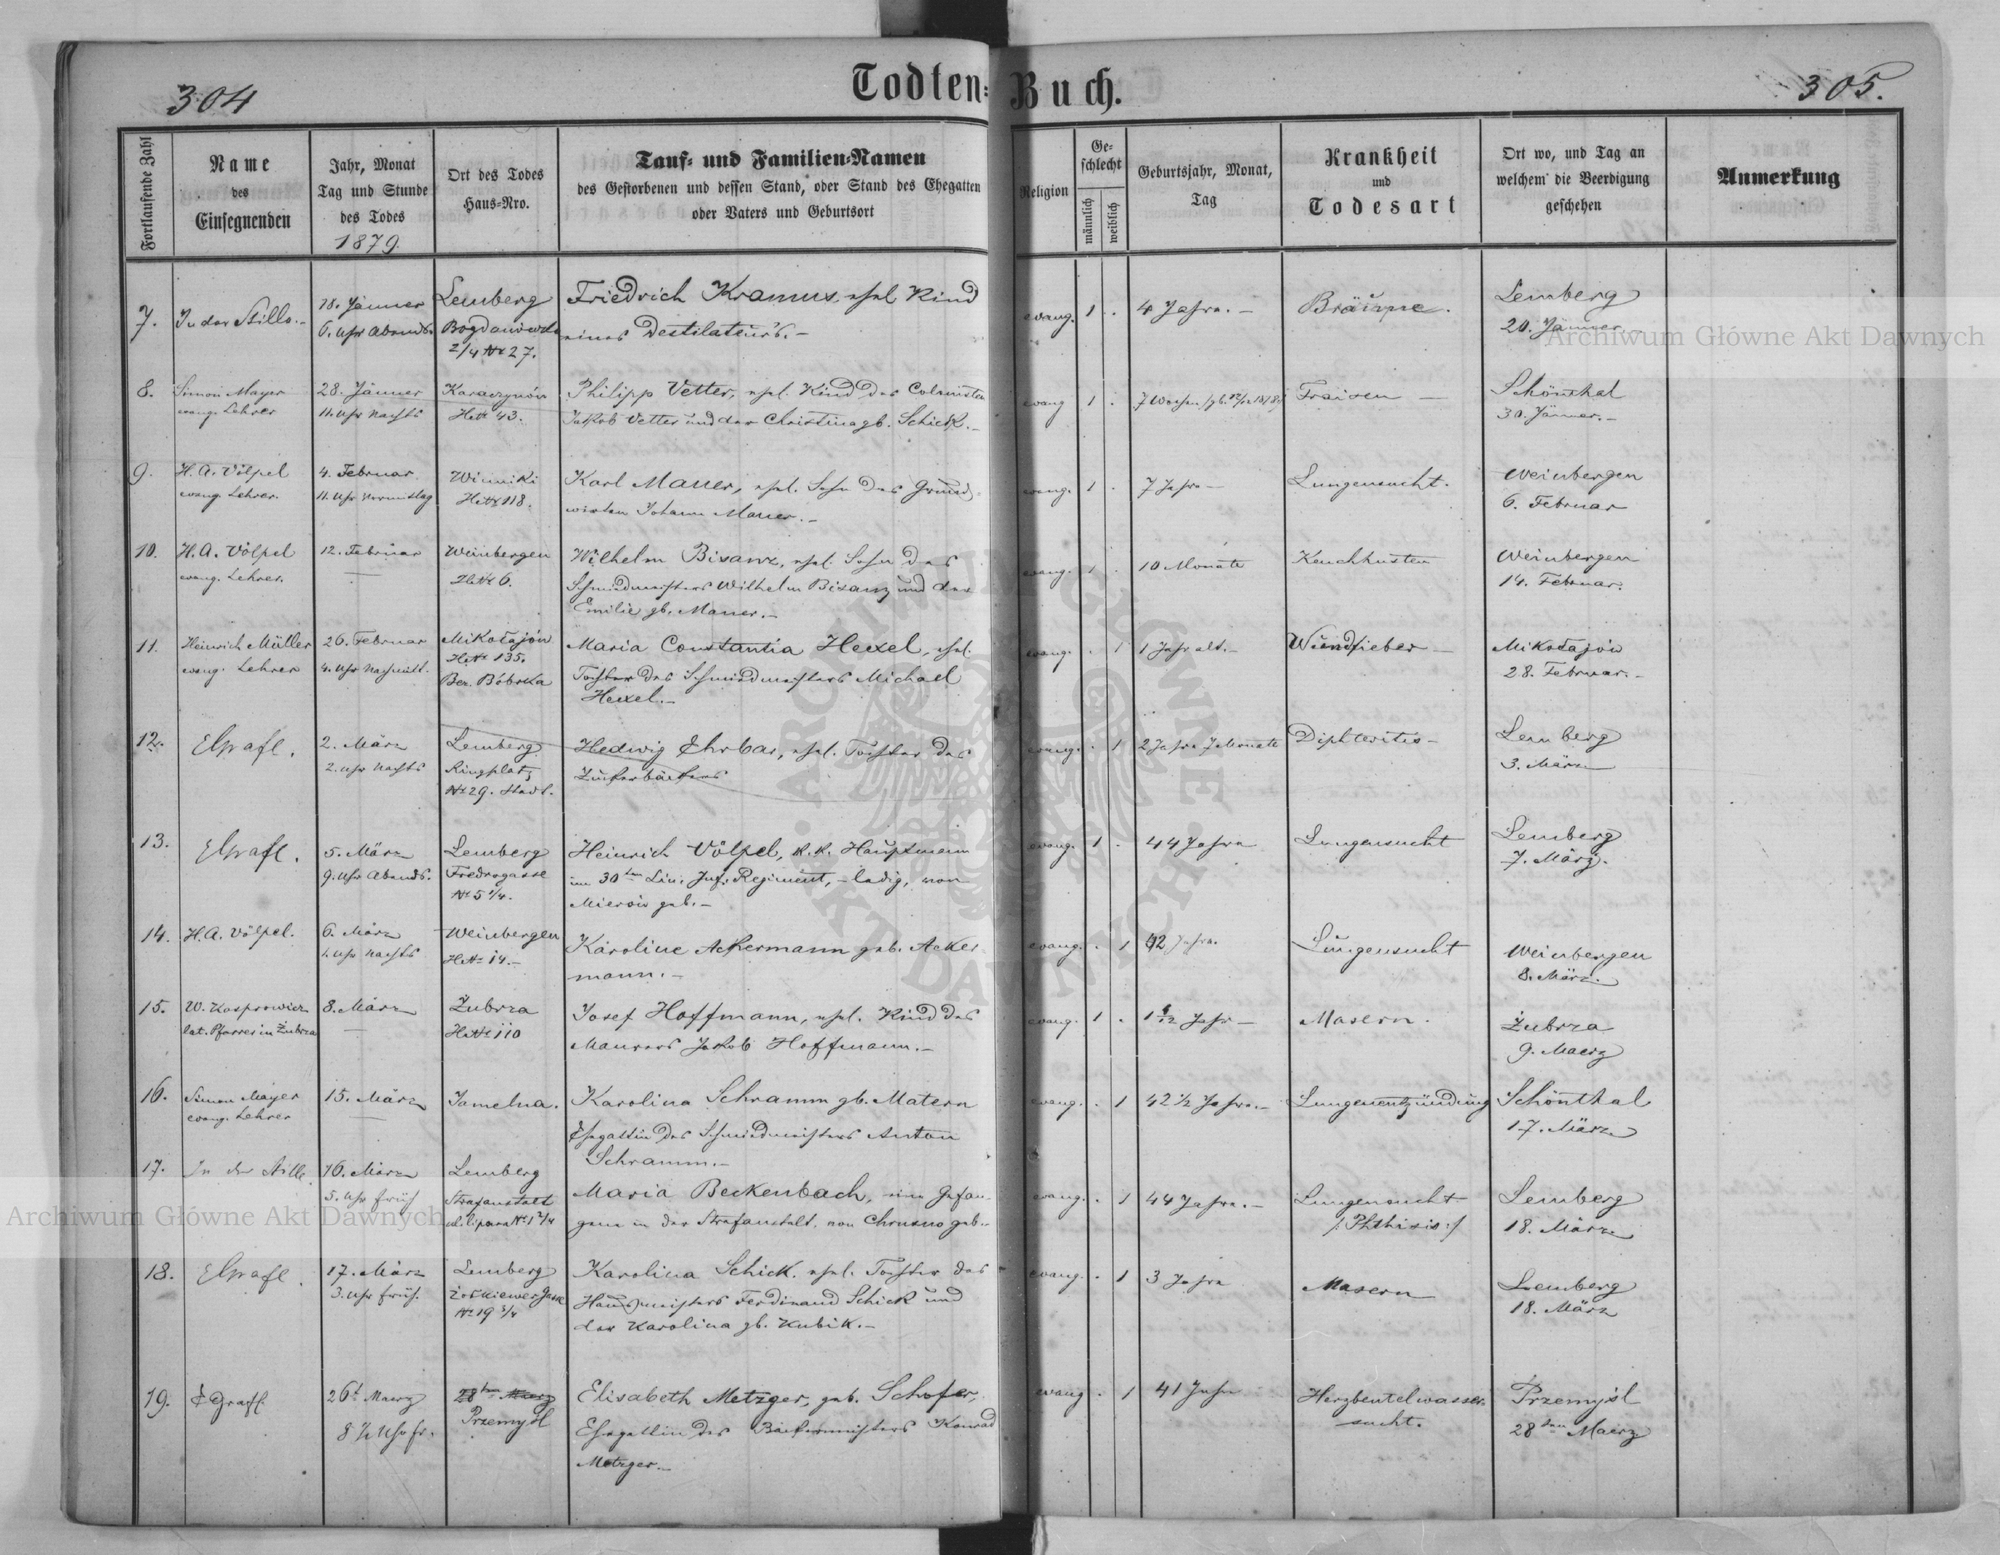 304
Todten-Buch.
305.
Fortlaufende Zahl
Name
des
Einsegnenden
Jahr, Monat
Tag und Stunde
des Todes
1879
Ort des Todes
Haus-Nro.
Tauf- und Familien-Namen
des Gestorbenen und dessen Stand, oder Stand des Ehegatten
oder Vaters und Geburtsort
Religion
Ge-
schlecht
männlich
weiblich
Geburtsjahr, Monat,
Tag
Krankheit
und
Todesart
Ort wo, und Tag an
welchem die Beerdigung
geschehen
Anmerkung
7.
In der Stille.-
18. Jänner
6. Uhr Abends.
Lemberg
2/4 No 27.
Friedrich Kramus, ehel. Kind
eines Destilateur's.-
evang.
1
4 Jahre.-
Bräune.
Lemberg
20. Jänner.
8.
Simon Mayer
evang. Lehrer
28. Jänner
11. Uhr Nachts
Karaczynów
HsNo 43.
Philipp Vetter, ehel. Kind des Colonisten
Jakob Vetter und der Christina gb. Schick.-
evang
1
7 Wochen
Fraisen -
Schönthal
30. Jänner.-
9.
H. A. Völpel
evang. Lehrer.
4. Februar
11. Uhr Vormittag
Winniki
HsNo 118.
Karl Mauer, ehel. Sohn des Grund-
wirten Johann Mauer.-
evang.
1
7 Jahre-
Lungensucht.
Weinbergen
6. Februar
10.
H. A. Völpel
evang. Lehrer.
12. Februar
Weinbergen
HsNo 6.
Wilhelm Bisanz, ehel. Sohn des
Schmiedmeisters Wilhelm Bisanz und der
Emilie gb. Mauer.-
evang.
1
10 Monate
Keuchhusten
Weinbergen
14. Februar.
11.
Heinrich Müller
evang. Lehrer
26. Februar
4. Uhr Nachmitt.
Mikołajów
HsNo 135.
Bez. Bóbrka
Maria Constantia Hexel, ehel.
Tochter des Schmiedmeisters Michael
Hexel.-
evang.
1
1 Jahr alt.-
Wundfieber -
Mikołajów
28. Februar.-
12.
EGrafl.
2. März
2. Uhr Nachts
Lemberg
Ringplatz
No 29. Stadt.
Hedwig Ehrbar, ehel. Tochter des
Zuckerbäckers
evang.
1
2 Jahre 7 Monate
Diphteritis-
Lemberg
3. März
13.
EGrafl.
5. März
9. Uhr Abends.
Lemberg
Fredrogasse
No 5 1/4.
Heinrich Völpel, k. k. Hauptmann
im 30ten Lin. Inf. Regiment, - ledig, von
Mierów geb.-
evang.
1
44 Jahre
Lungensucht
Lemberg
7. März.
14.
H. A. Völpel.
6. März
1. Uhr Nachts
Weinbergen
HsNo 14.-
Karoline Ackermann geb. Acker-
mann.-
evang.
1
Jahre.
Lungensucht
Weinbergen
8. März.
15.
W. Kasprowicz
lat. Pfarrer in Zubrza
8. März
Zubrza
HsNo 110
Josef Hoffmann, ehel. Kind des
Maurers Jakob Hoffmann.-
evang.
1
Jahr -
Masern.
Żubrza
9. Maerz
16.
Simon Mayer
evang. Lehrer
15. März
Jamelna.
Karolina Schramm gb. Matern
Ehegattin des Schmiedmeisters Anton
Schramm.-
evang.
1
42 1/2 Jahre.-
Lungenentzündung
Schönthal
17. März
17.
In der Stille.
16. März
5. Uhr früh
Lemberg
Strafanstalt
Maria Beckenbach, eine Gefan-
gene in der Strafanstalt, von Chrusno geb.-
evang.
1
44 Jahre.-
Lungensucht
/:Phthisis:/
Lemberg
18. März
18.
EGrafl.
17. März
3. Uhr früh.
Lemberg
Żołkiewer Gasse
No 19 3/4
Karolina Schick, ehel. Tochter des
Hausmeisters Ferdinand Schick und
der Karolina gb. Kubik.-
evang.
1
3 Jahre
Masern
Lemberg
18. März
19.
EGrafl.
26t Maerz
8 1/2 Uhr fr.
28ten Maerz
Przemyśl
Elisabeth Metzger, geb. Schofer,
Ehegattin des Bäckermeisters Konrad
Metzger.-
evang
1
41 Jahre
Herzbeutelwasser-
sucht.
Przemyśl
28ten Maerz
Archiwum Główne Akt Dawnych
Archiwum Główne Akt Dawnych
ARCHIWUM GŁÓWNE AKT DAWNYCH